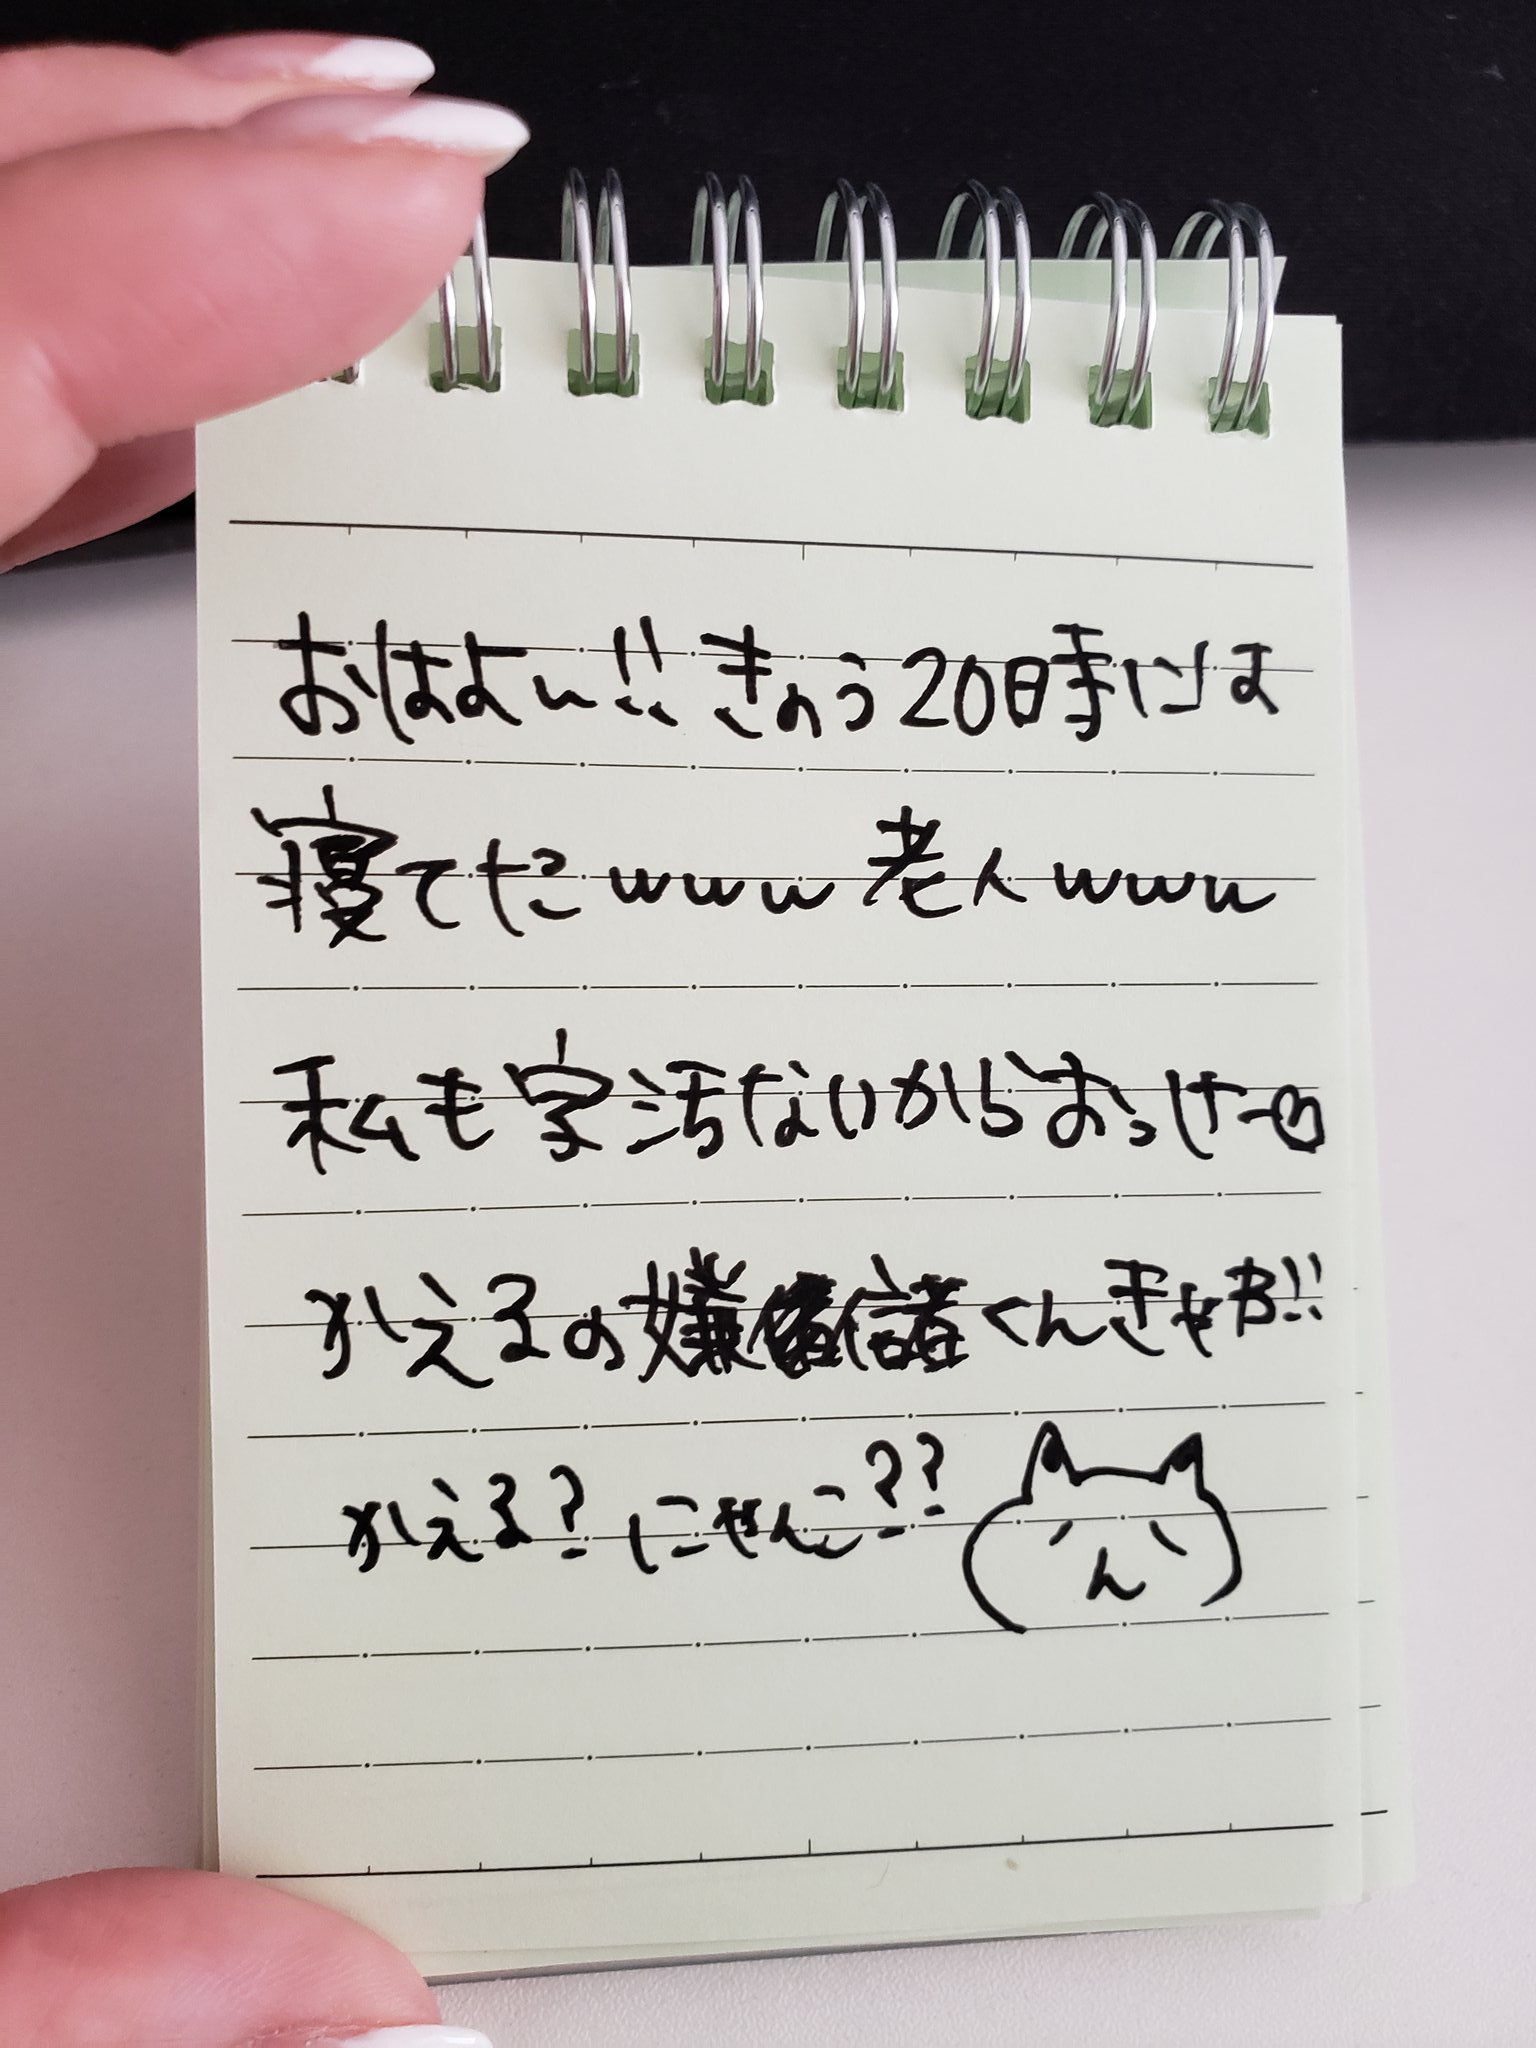 おはよ〜!! きのう20時には
寝てたwww 老人www
私も字汚ないからおっけー♡
かえるの嫌儲くんきゃわ!!
かえる? にゃんこ??
ん